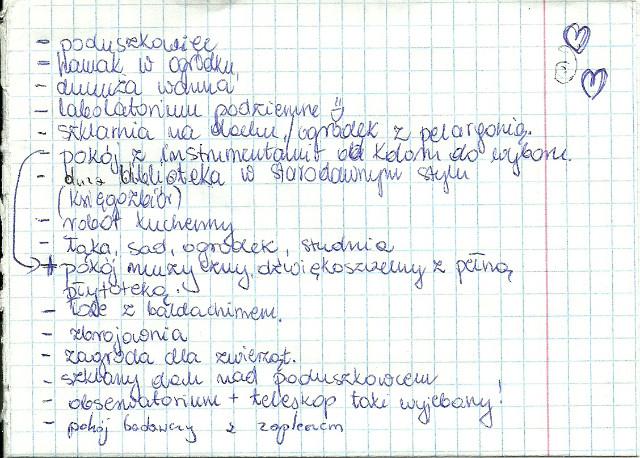 - poduszkowiec
- hamak w ogródku
- duuuża wanna
- labolatorium podziemne
- szklarnia na dachu / ogródek z pelargonią.
- pokój z instrumentami od koloru do wyboru.
- duża biblioteka w starodawnym stylu
(księgozbiór)
- robot kuchenny
- łąka, sad, ogródek, studnia
+ pokój muzyczny, dźwiękoszczelny z pełną
płytoteką.
- łoże z baldachimem.
- zbrojownia
- zagroda dla zwierząt.
- szklany dom nad poduszkowcem
- obserwatorium + teleskop taki wyjebany!
- pokój badawczy z zapleczem